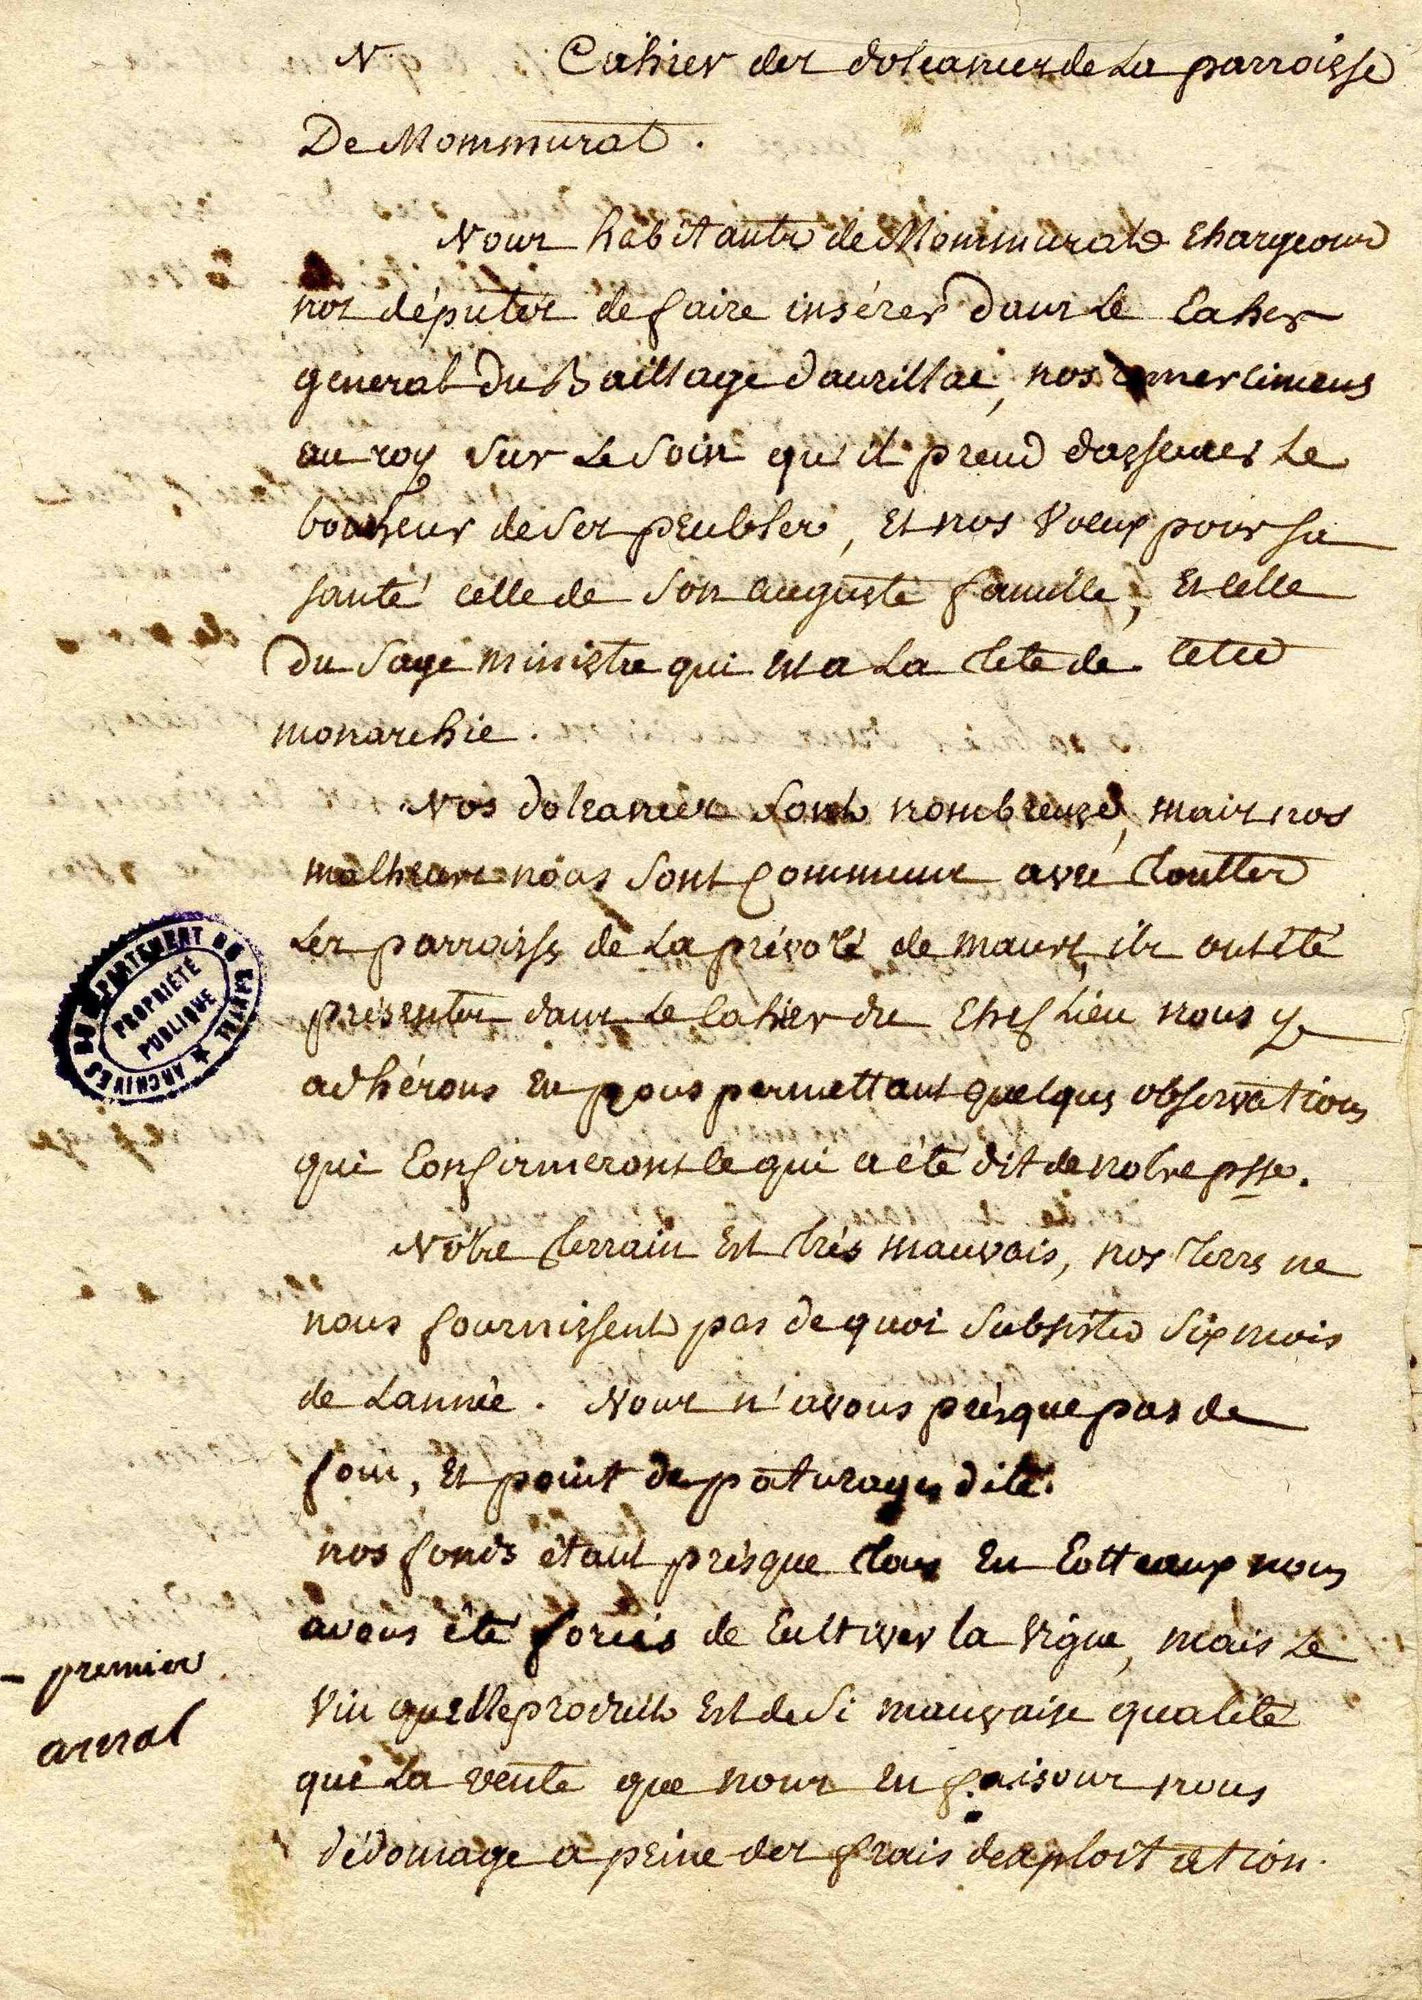 N Cahier des doleances de La parroisse
De Mommurat.
Nous habitants de Mommurat chargeons
nos députés de faire insérer dans Le Caher
general du Baillage daurillac, nos remercimens
au roy sur Le Soin qu'il prend dassurer Le
bonheur de Ses peubles, Et nos Voeux pour sa
santé celle de Son auguste famille, Et celle
du Sage ministre qui est a La tete de cette
monarchie.
Nos doleances Sont nombreuse, mais nos
malheurs nous Sont Communs avec toutter
Les parroisses de La prévoté de maurs, ils ont été
présentés dans Le Cahier du Chef Lieu nous y
adhérons En nous permettant quelques observations
qui Confirmeront ce qui a été dit de notre psse.
Notre terrain Est très mauvais, nos terres ne
nous fournissent pas de quoi Subsister Six mois
de Lannée. Nous n'avons présque pas de
foin, Et point de paturages dété.
nos fonds étant présque tous En Cotteaux nous
avons été forcés de Cultiver la vigne, mais Le
Vin quelle produit Est de Si mauvaise qualité
que La vente que nous En faisons nous
dédomage a peine des frais dexploitation.
- premier
arnal
ARCHIVES DU DÉPARTEMENT DU CANTAL
PROPRIÉTÉ
PUBLIQUE